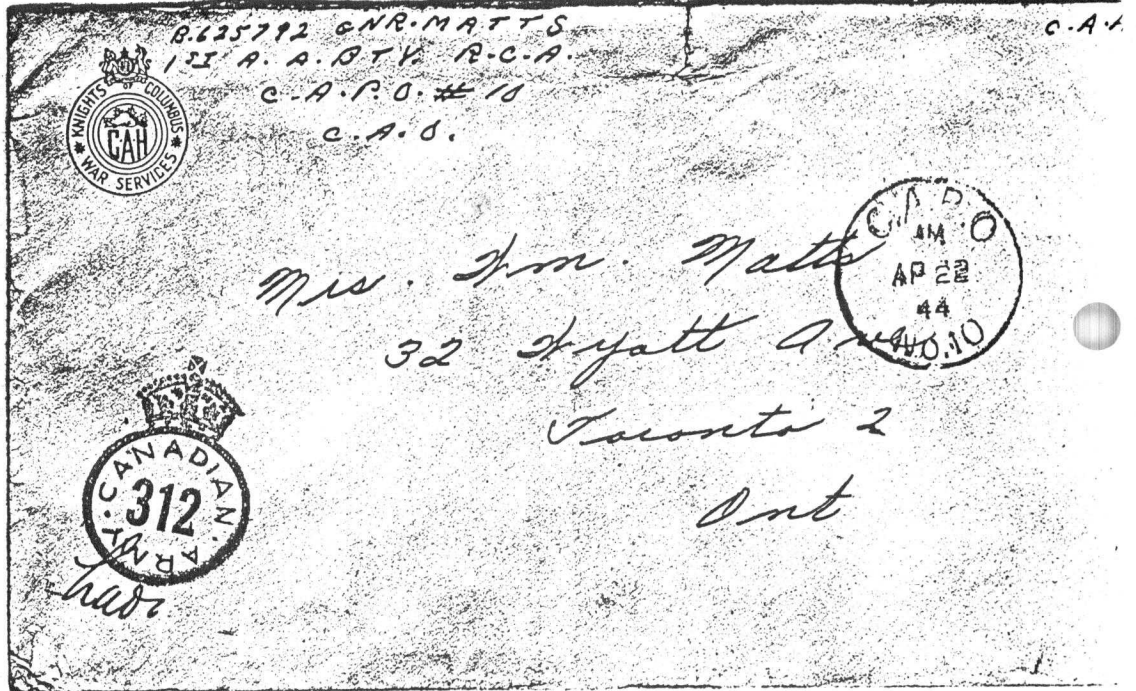 B.635792 GNR. MATTS
1ST A. A. BTY. R.C.A.
C.A.P.O. # 10
C.A.O.
C.A.
KNIGHTS OF COLUMBUS
CAH
WAR SERVICES
C.A.P.O
AM
AP 22
44
NO.10
Mrs. Wm. Matts
32 Wyatt Ave
Toronto 2
Ont
CANADIAN ARMY
312